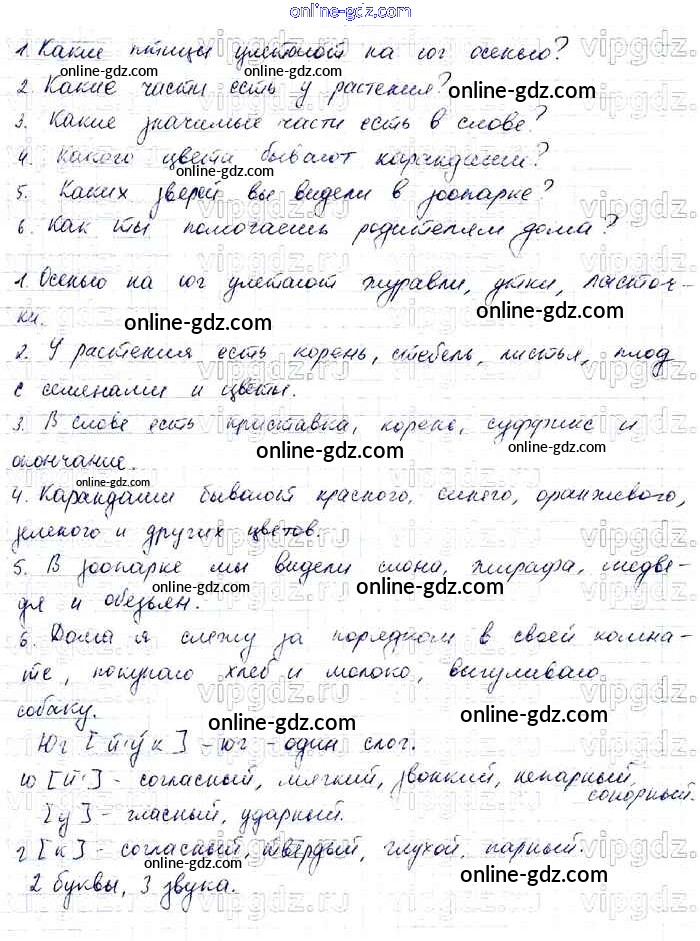 online-gdz.com
1. Какие птицы улетают на юг осенью?
online-gdz.com
2. Какие части есть у растения? online-gdz.com
3. Какие значимые части есть в слове?
4. Какого цвета бывают карандаши?
online-gdz.com online-gdz.com
5. Каких зверей вы видели в зоопарке?
6. Как ты помогаешь родителям дома?
1. Осенью на юг улетают журавли, утки, ласточ-
ки.
online-gdz.com online-gdz.com
2. У растения есть корень, стебель, листья, плод
с семенами и цветы.
3. В слове есть приставка, корень, суффикс и
online-gdz.com
окончание. online-gdz.com
4. Карандаши бывают красного, синего, оранжевого,
зеленого и других цветов.
5. В зоопарке мы видели слона, жирафа, медве-
online-gdz.com online-gdz.com
дя и обезьян.
6. Дома я слежу за порядком в своей комна-
те, покупаю хлеб и молоко, выгуливаю
собаку.
online-gdz.com online-gdz.com
Юг [й'ук] - юг - один слог.
ю [й'] - согласный, мягкий, звонкий, непарный,
сонорный.
[у] - гласный, ударный.
г [к] - согласный, твердый, глухой, парный.
online-gdz.com online-gdz.com
2 буквы, 3 звука.
vipgdz.ru